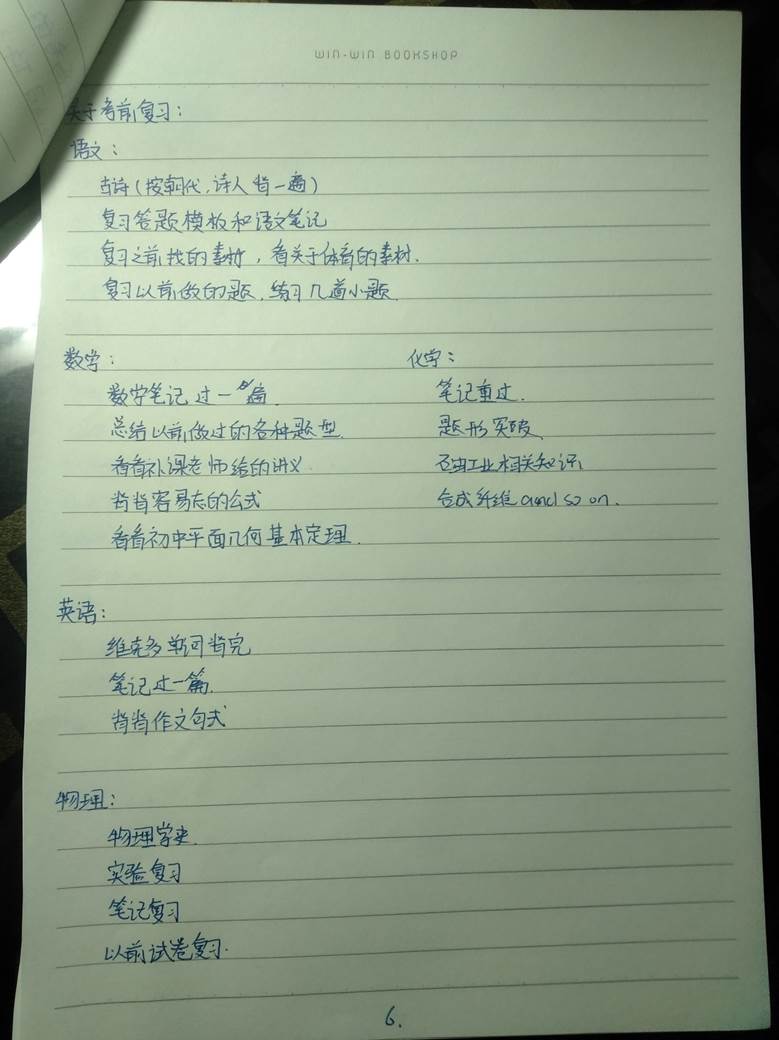 WIN-WIN BOOKSHOP
关于考前复习：
语文：
古诗（按朝代，诗人背一遍）
复习答题模板和语文笔记
复习之前找的素材，看关于体育的素材.
复习以前做的题，练习几道小题.
数学：
数学笔记过一遍
总结以前做过的各种题型.
看看补课老师给的讲义.
背背容易忘的公式
看看初中平面几何基本定理.
化学：
笔记重过.
题形突破.
石油工业相关知识
合成纤维 and so on.
英语：
维克多单词背完
笔记过一篇.
背背作文句式
物理：
物理学史.
实验复习
笔记复习
以前试卷复习.
6.